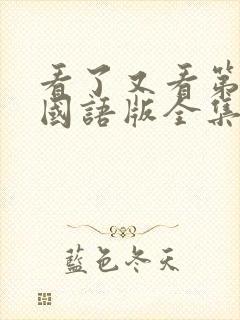 看了又看第
國語版全集
藍色冬天